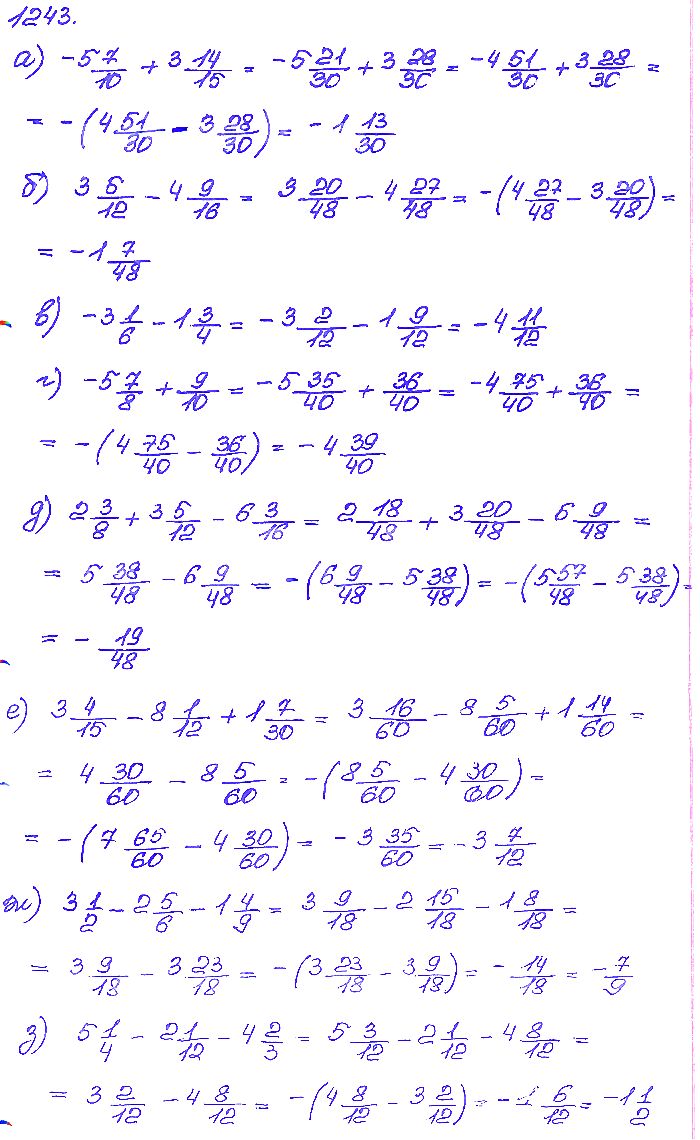 1243.
а) -5 7/10 + 3 14/15 = -5 21/30 + 3 28/30 = -4 51/30 + 3 28/30 =
= -(4 51/30 - 3 28/30) = -1 13/30
б) 3 5/12 - 4 9/16 = 3 20/48 - 4 27/48 = -(4 27/48 - 3 20/48) =
= -1 7/48
в) -3 1/6 - 1 3/4 = -3 2/12 - 1 9/12 = -4 11/12
г) -5 7/8 + 9/10 = -5 35/40 + 36/40 = -4 75/40 + 36/40 =
= -(4 75/40 - 36/40) = -4 39/40
д) 2 3/8 + 3 5/12 - 6 3/16 = 2 18/48 + 3 20/48 - 6 9/48 =
= 5 38/48 - 6 9/48 = -(6 9/48 - 5 38/48) = -(5 57/48 - 5 38/48) =
= - 19/48
е) 3 4/15 - 8 1/12 + 1 7/30 = 3 16/60 - 8 5/60 + 1 14/60 =
= 4 30/60 - 8 5/60 = -(8 5/60 - 4 30/60) =
= -(7 65/60 - 4 30/60) = -3 35/60 = -3 7/12
ж) 3 1/2 - 2 5/6 - 1 4/9 = 3 9/18 - 2 15/18 - 1 8/18 =
= 3 9/18 - 3 23/18 = -(3 23/18 - 3 9/18) = - 14/18 = - 7/9
з) 5 1/4 - 2 1/12 - 4 2/3 = 5 3/12 - 2 1/12 - 4 8/12 =
= 3 2/12 - 4 8/12 = -(4 8/12 - 3 2/12) = -1 6/12 = -1 1/2